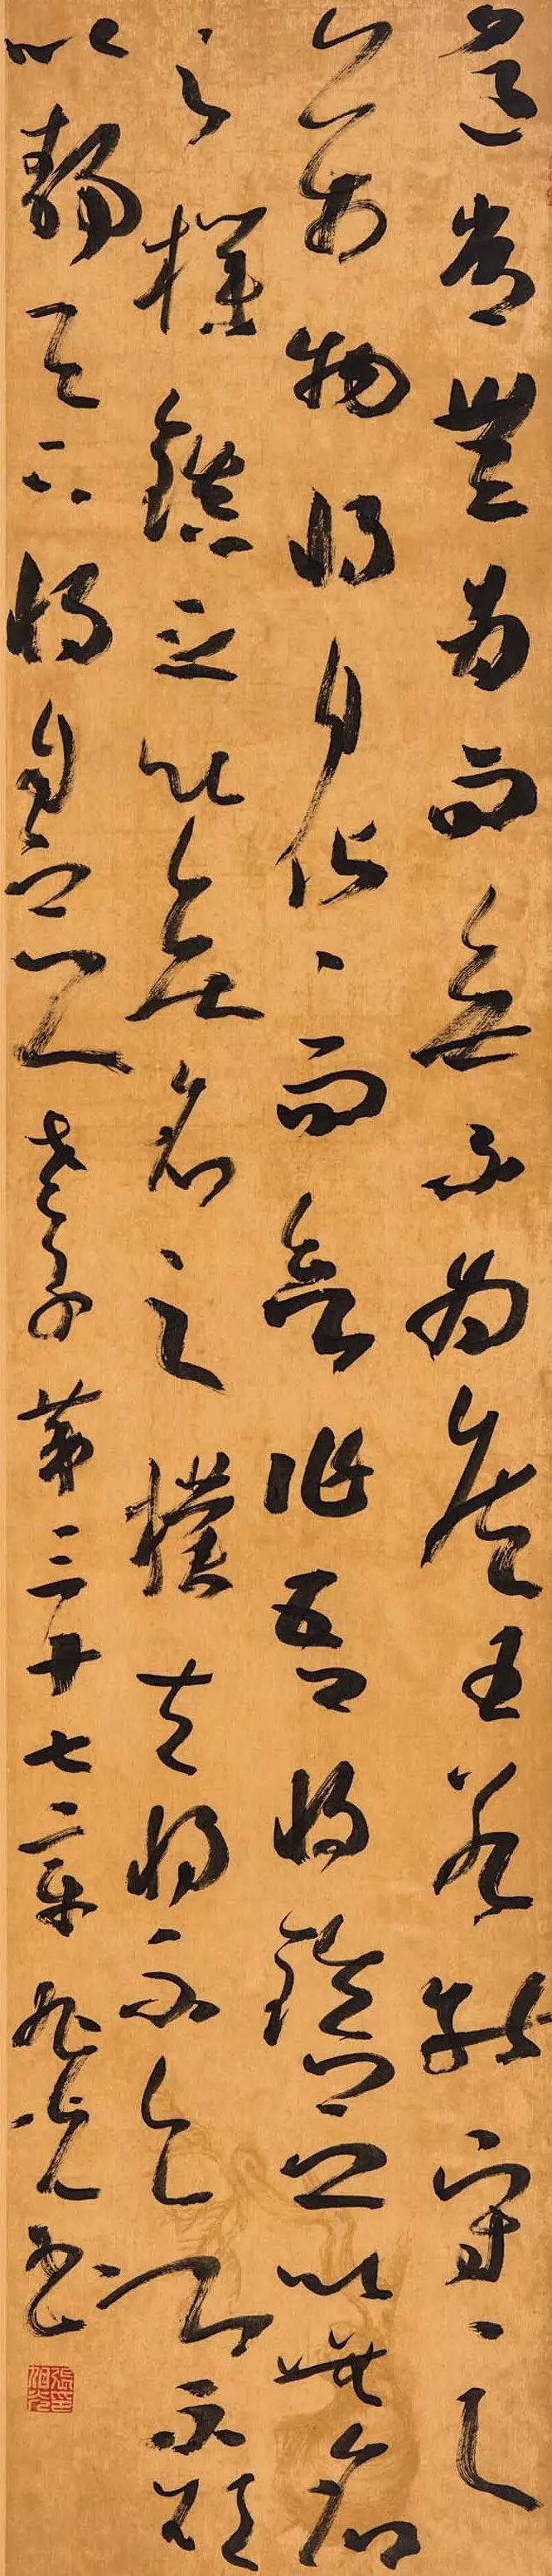 道常無為而無不為侯王若能守之
萬物将自化、而欲作吾将鎮之以無名
之樸鎮之以無名之樸夫将不不欲
以靜天下将自老子第三廿七章旭光书
張印旭光